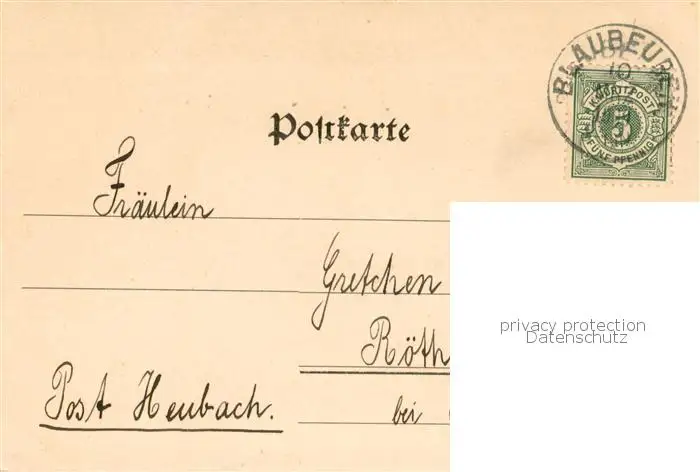 BLAUBEUREN
10
K. WÜRTT. POST
5
FÜNF PFENNIG
Postkarte
Fräulein
Gretchen
Röth
Post Heubach.
bei
privacy protection
Datenschutz